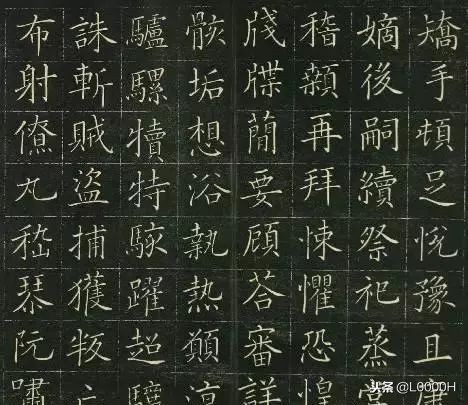 矯手頓足悅豫且康
嫡後嗣續祭祀蒸嘗
稽顙再拜悚懼恐惶
牋牒簡要顧荅審詳
骸垢想浴執熱願凉
驢騾犢特駭躍超驤
誅斬賊盜捕獲叛亡
布射僚丸嵇琴阮嘯
头条 @L0000H